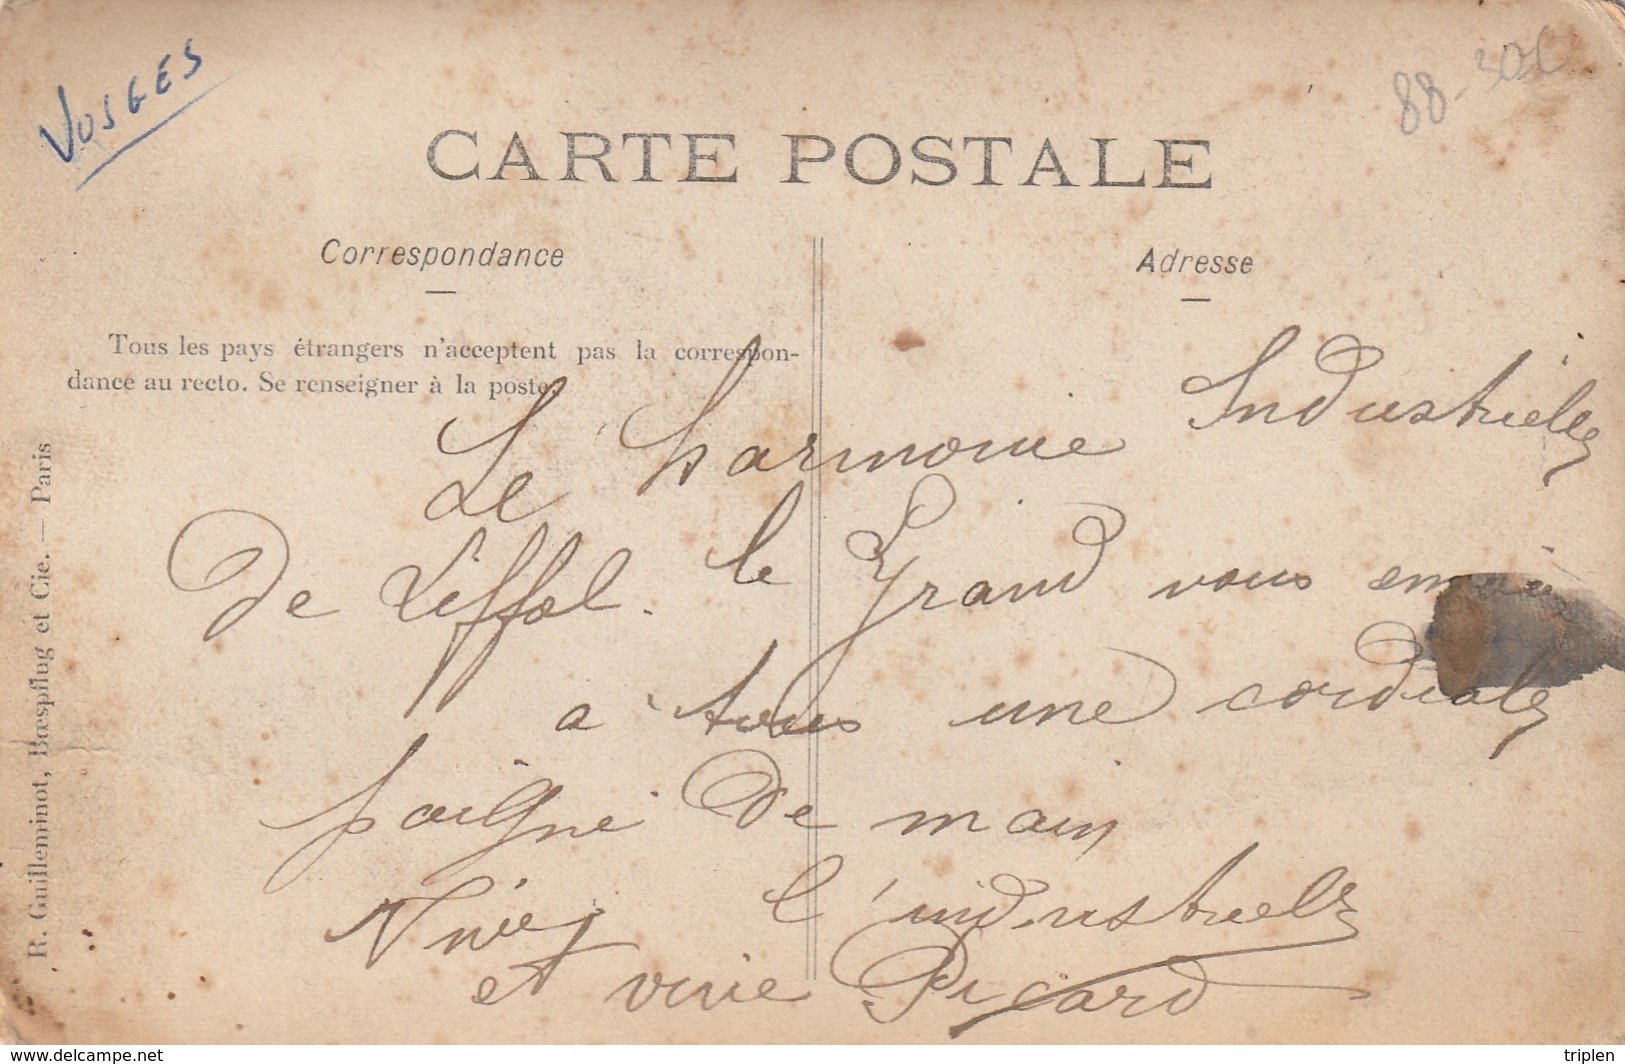 VOSGES
88-30€
CARTE POSTALE
Correspondance
Adresse
Tous les pays étrangers n'acceptent pas la correspon-
dance au recto. Se renseigner à la poste.
Le harmonie Industrielle
de Liffol. le Grand vous envoie
a tous une cordiale
poigne de main
Vive l'industrielle
et vive Picard
R. Guilleminot, Bœspflug et Cie. — Paris
www.delcampe.net
triplen